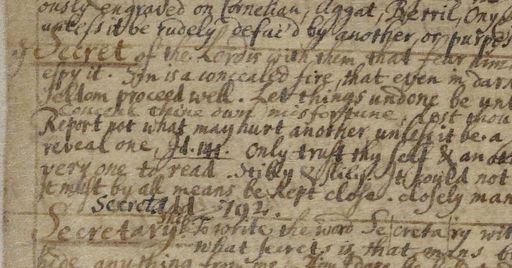 ously engraved on Cornelian, Aggat, Berril, Onyx
unless it be rudely defac'd by another or purpos
Secret of the Lord is with them that fear him
espy it. Sin is a concealed fire, that even in dark
seldom proceed well. Let things undone be unt
Conceal thine own misfortune, lest thou
Report not what may hurt another, unless it be a
reveal one, Only trust thy self & anot
very one to read. it should not
it must by all means be kept close. closely man
Secreta 192.
Secretary To write the word Secretary with
What secrets is that mans b
hide anything from me.